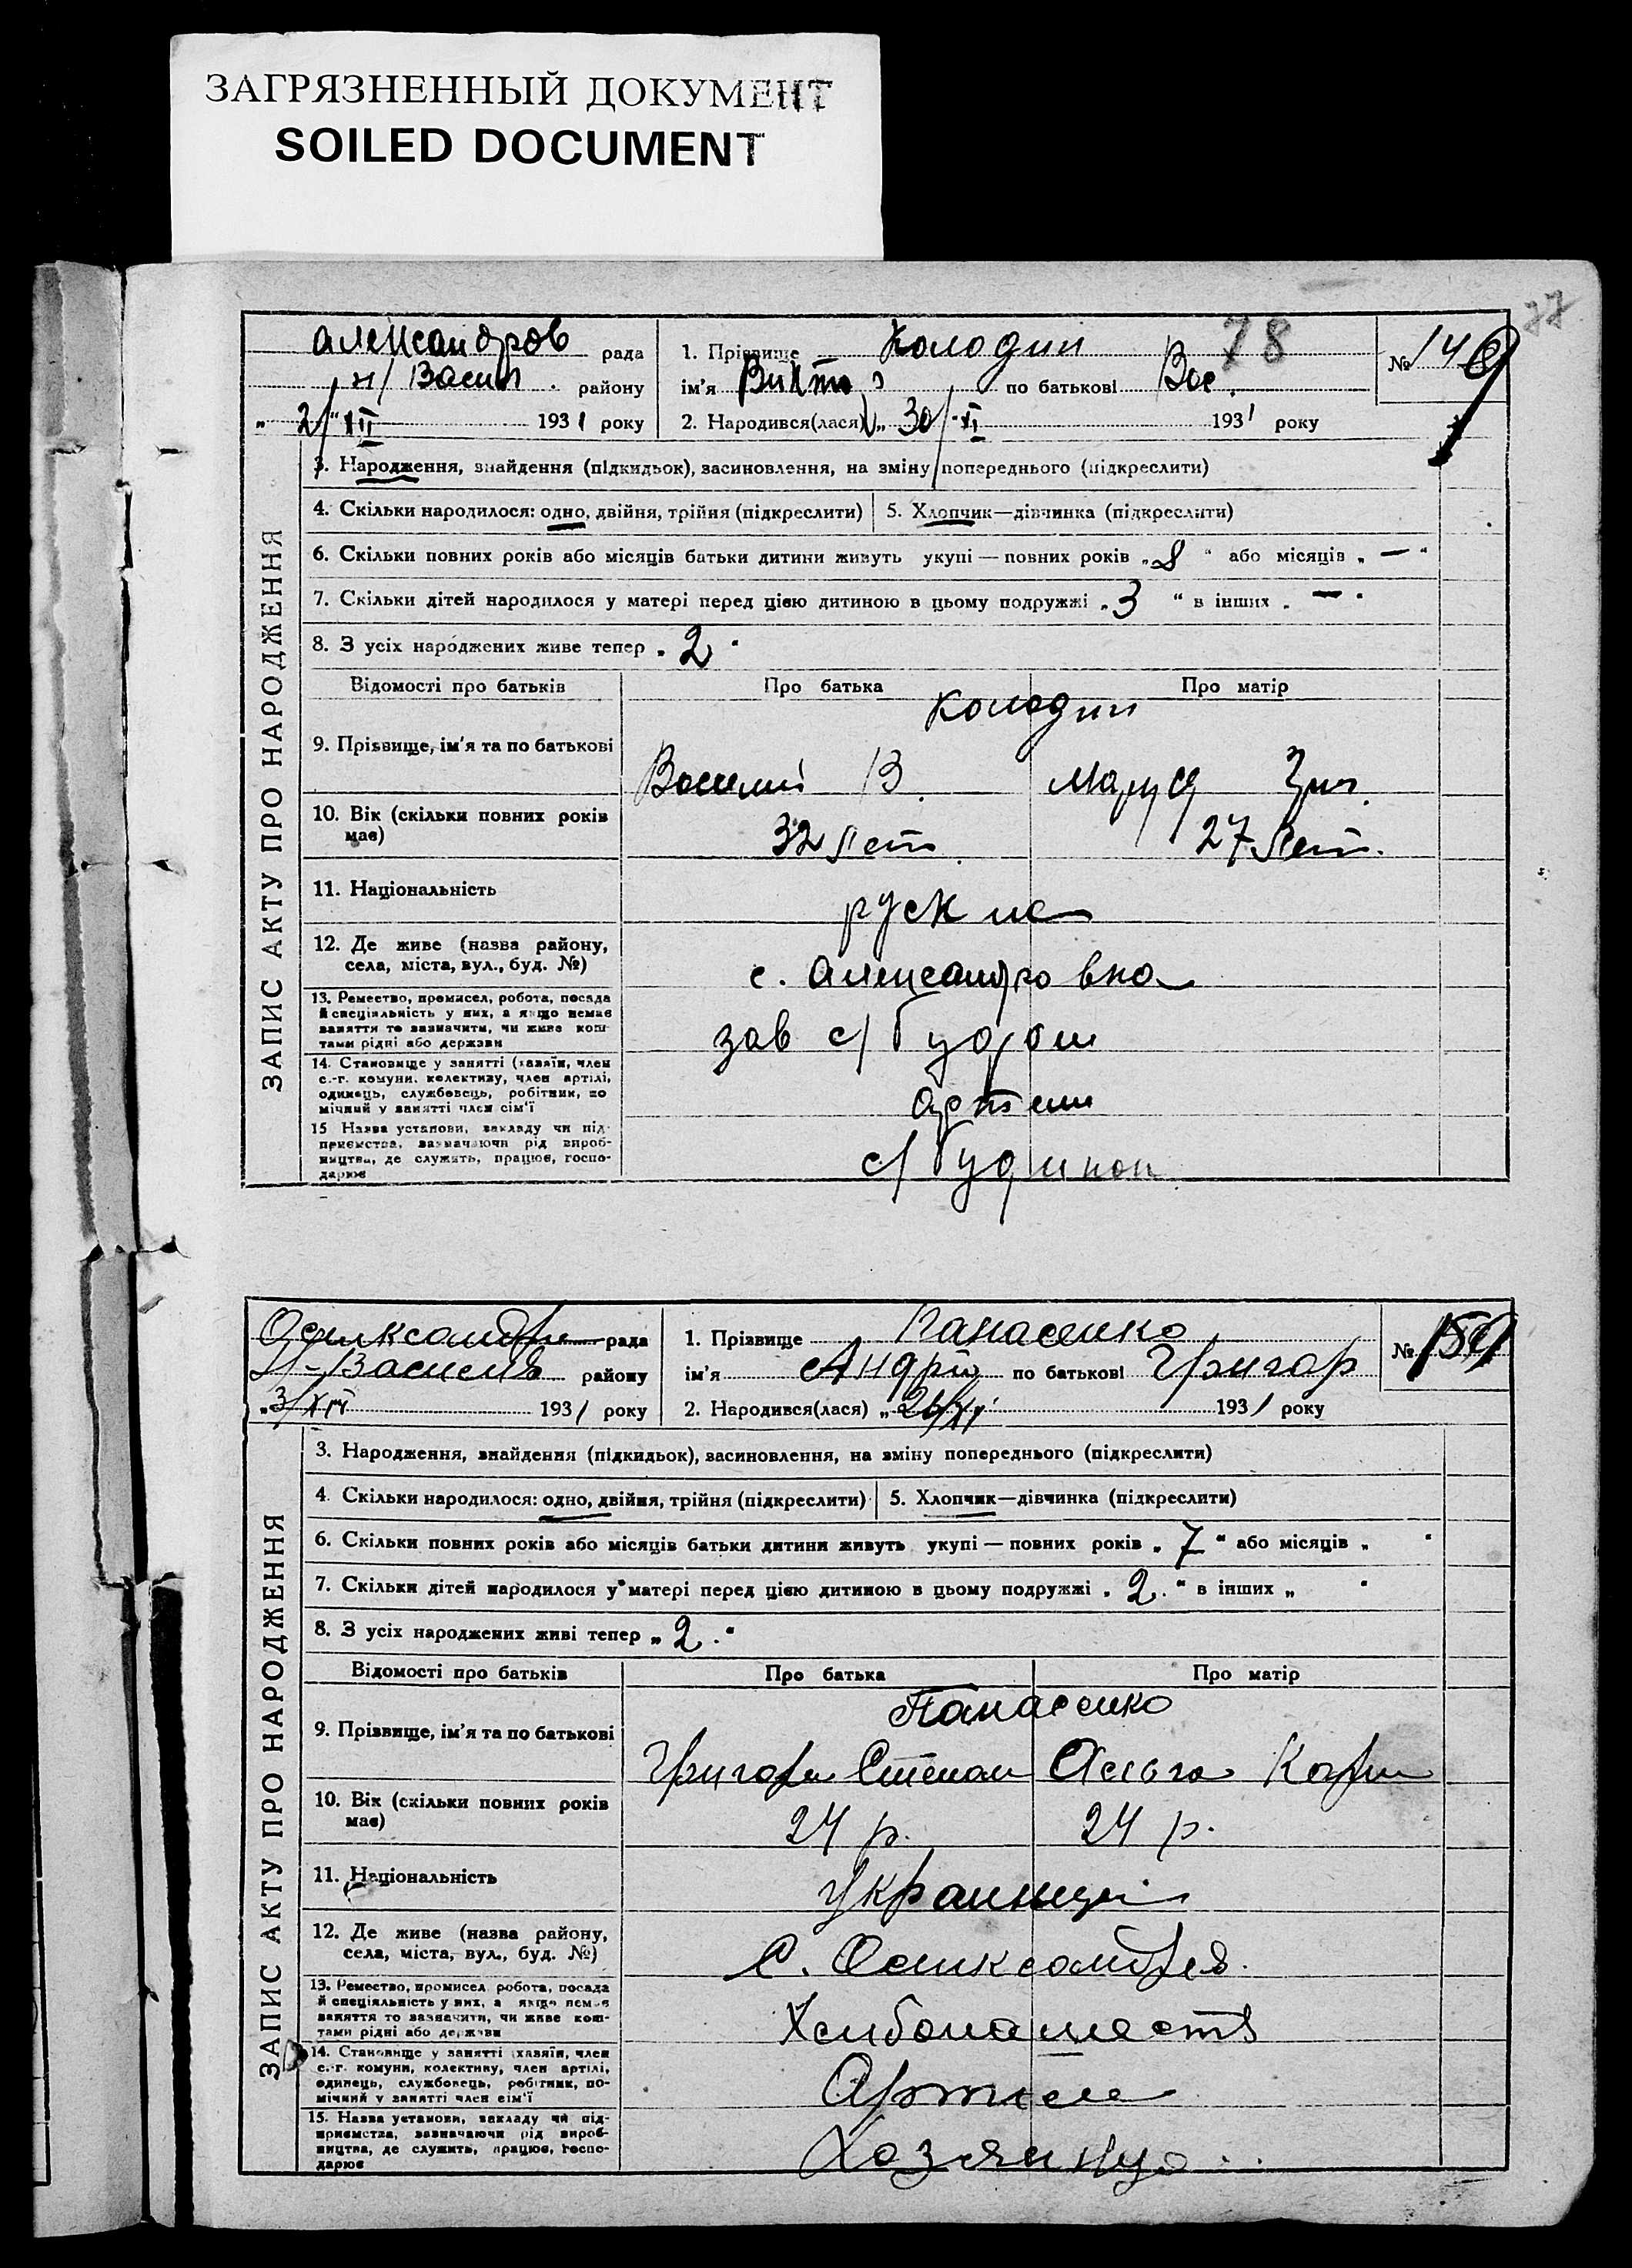 ЗАГРЯЗНЕННЫЙ ДОКУМЕНТ
SOILED DOCUMENT
77
78
Александров рада
н/Васил. району
„2/" XII 1931 року
1. Прізвище Колодий
ім'я Викто по батькові Вас.
№ 149
2. Народився(лася) „30/XI 1931 року
ЗАПИС АКТУ ПРО НАРОДЖЕННЯ
3. Народження, знайдення (підкидьок), засиновлення, на зміну попереднього (підкреслити)
4. Скільки народилося: одно, двійня, трійня (підкреслити)
5. Хлопчик—дівчинка (підкреслити)
6. Скільки повних років або місяців батьки дитини живуть укупі — повних років „8" або місяців „—"
7. Скільки дітей народилося у матері перед цією дитиною в цьому подружжі „3" в інших „—"
8. З усіх народжених живе тепер „2"
Відомості про батьків Про батька Про матір
Колодий
9. Прізвище, ім'я та по батькові
Василий В. Маруся
10. Вік (скільки повних років має)
32 лет 27 лет.
11. Національність
руск
12. Де живе (назва району, села, міста, вул., буд. №)
с. Александровка
13. Ремество, промисел, робота, посада й спеціяльність у них, а якщо немає заняття то зазначити, чи живе коштами рідні або держави
зав с/будом
14. Становище у занятті (хазяїн, член с.-г. комуни, колективу, член артілі, одинець, службовець, робітник, помічний у занятті член сім'ї
Артели
15. Назва установи, закладу чи підприємства, зазначаючи рід виробництва, де служить, працює, господарює
с/будинок
рада
Н-Василів району
„3/XII 1931 року
1. Прізвище Панасенко
ім'я Андрій по батькові Григор
№ 150
2. Народився(лася) „26/XI 1931 року
ЗАПИС АКТУ ПРО НАРОДЖЕННЯ
3. Народження, знайдення (підкидьок), засиновлення, на зміну попереднього (підкреслити)
4. Скільки народилося: одно, двійня, трійня (підкреслити)
5. Хлопчик—дівчинка (підкреслити)
6. Скільки повних років або місяців батьки дитини живуть укупі — повних років „7" або місяців „ "
7. Скільки дітей народилося у матері перед цією дитиною в цьому подружжі „2." в інших „ "
8. З усіх народжених живі тепер „2."
Відомості про батьків Про батька Про матір
Панасенко
9. Прізвище, ім'я та по батькові
Григорій Степан Ольга Карп
10. Вік (скільки повних років має)
24 р. 24 р.
11. Національність
Украинці
12. Де живе (назва району, села, міста, вул., буд. №)
С. Олександрів.
13. Ремество, промисел робота, посада й спеціяльність у них, а якщо немає заняття то зазначити, чи живе коштами рідні або держави
14. Становище у занятті (хазяїн, член с.-г. комуни, колективу, член артілі, одинець, службовець, робітник, помічний у занятті член сім'ї
15. Назва установи, закладу чи підприємства, зазначаючи рід виробництва, де служить, працює, господарює